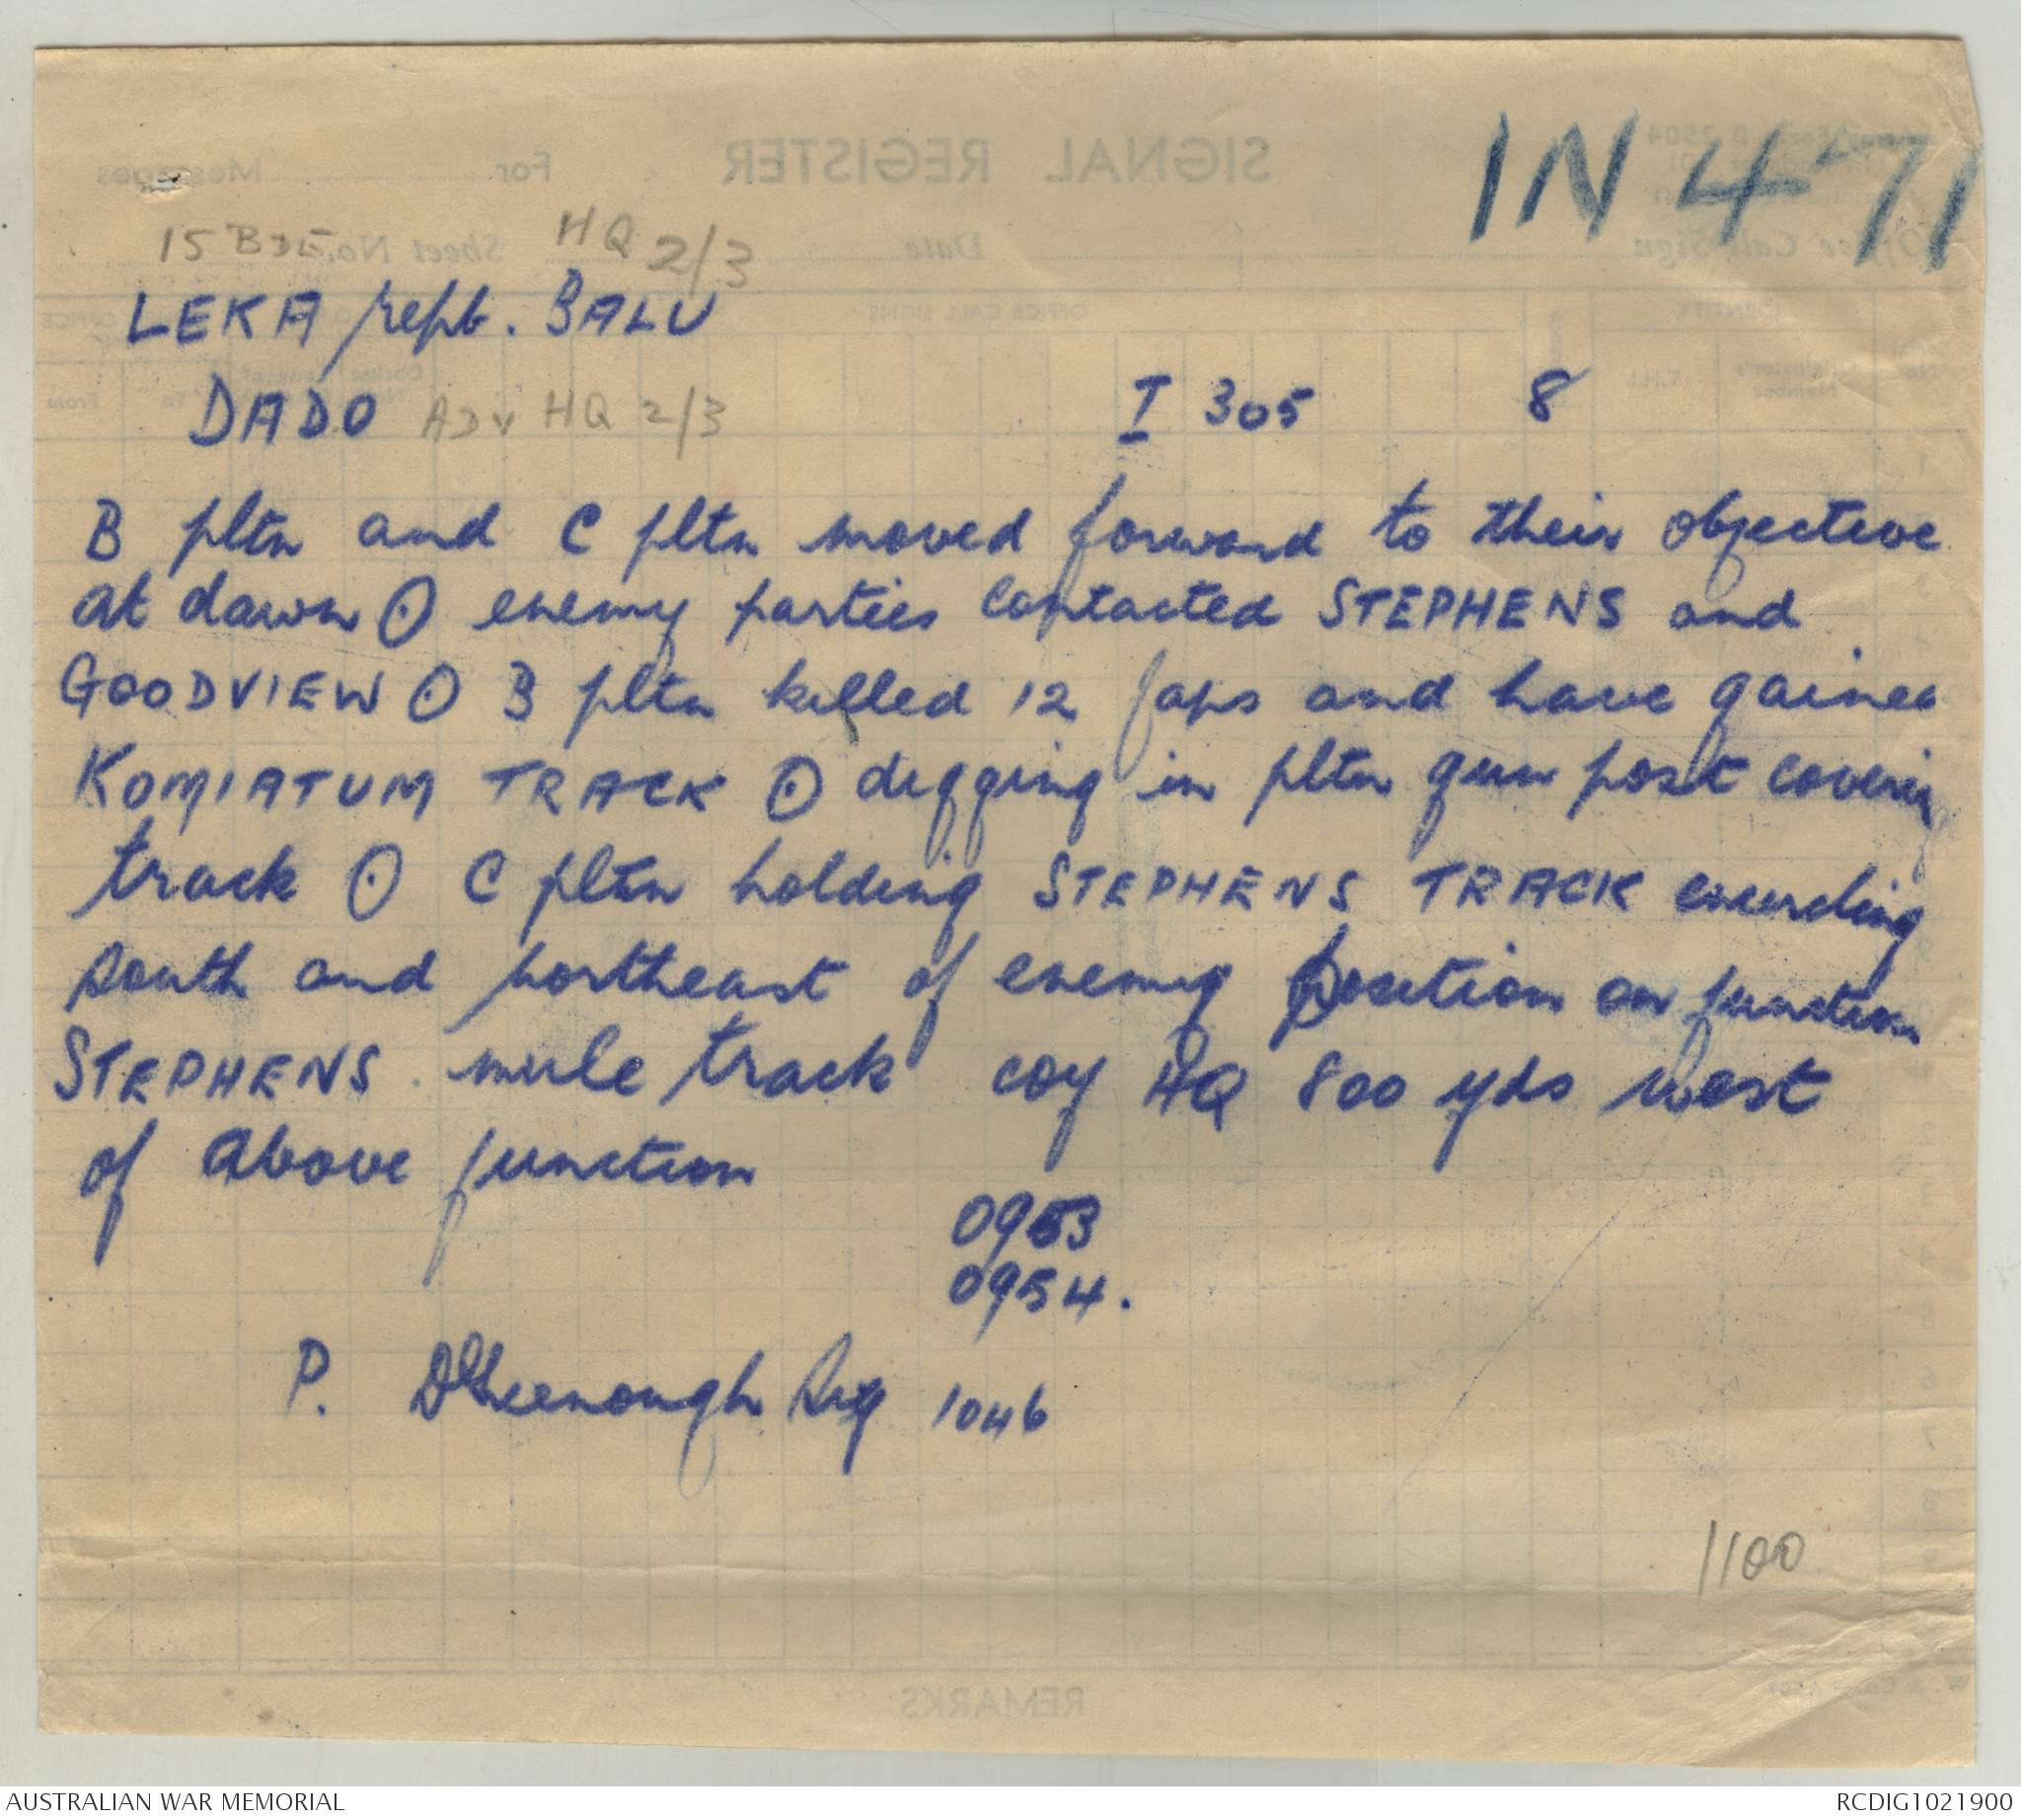 IN 471
15 BDE HQ 2/3
LEKA rept. BALU
DADO ADV HQ 2/3 I 305 8
B pltn and C pltn moved forward to their objective
at dawn ⊙ enemy parties contacted STEPHENS and
GOODVIEW ⊙ B pltn killed 12 Japs and have gained
KOMIATUM TRACK ⊙ digging in pltn gun post covering
track ⊙ C pltn holding STEPHENS TRACK
south and northeast of enemy position on junction
STEPHENS mule track coy HQ 800 yds west
of above junction
0953
0954.
P. Sig 1046
1100
SIGNAL REGISTER
For Messages
Sheet No.
Date
OFFICE CALL SIGNS
IDENTITY
REMARKS
AUSTRALIAN WAR MEMORIAL RCDIG1021900